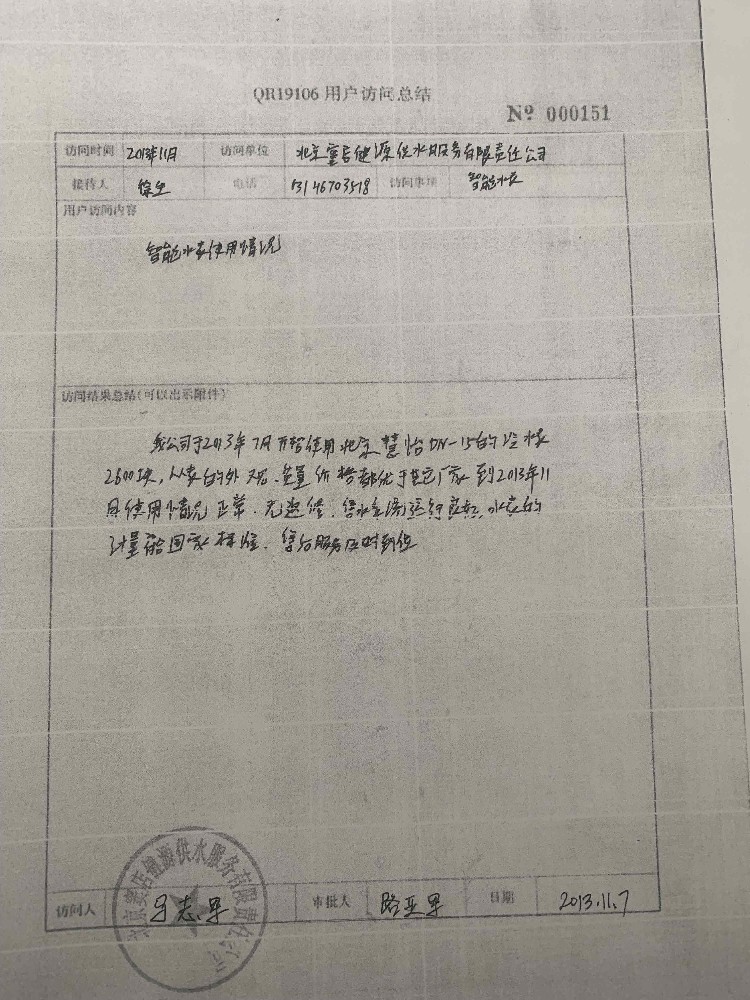 QR19106 用户访问总结
Nº 000151
访问时间 2013年11月 访问单位 北京窦店健源供水服务有限责任公司
接待人 徐 电话 13146703518 访问事项 智能水表
用户访问内容
智能水表使用情况
访问结果总结(可以出示附件)
我公司于2013年7月开始使用北京慧怡DN-15的冷水表
2600块,从表的外观、质量价格都优于其它厂家到2013年11
月使用情况正常、无返修、售水系统运行良好,水表的
计量符合国家标准、售后服务及时到位
访问人 志军 审批人 路亚军 日期 2013.11.7
北京窦店健源供水服务有限责任公司